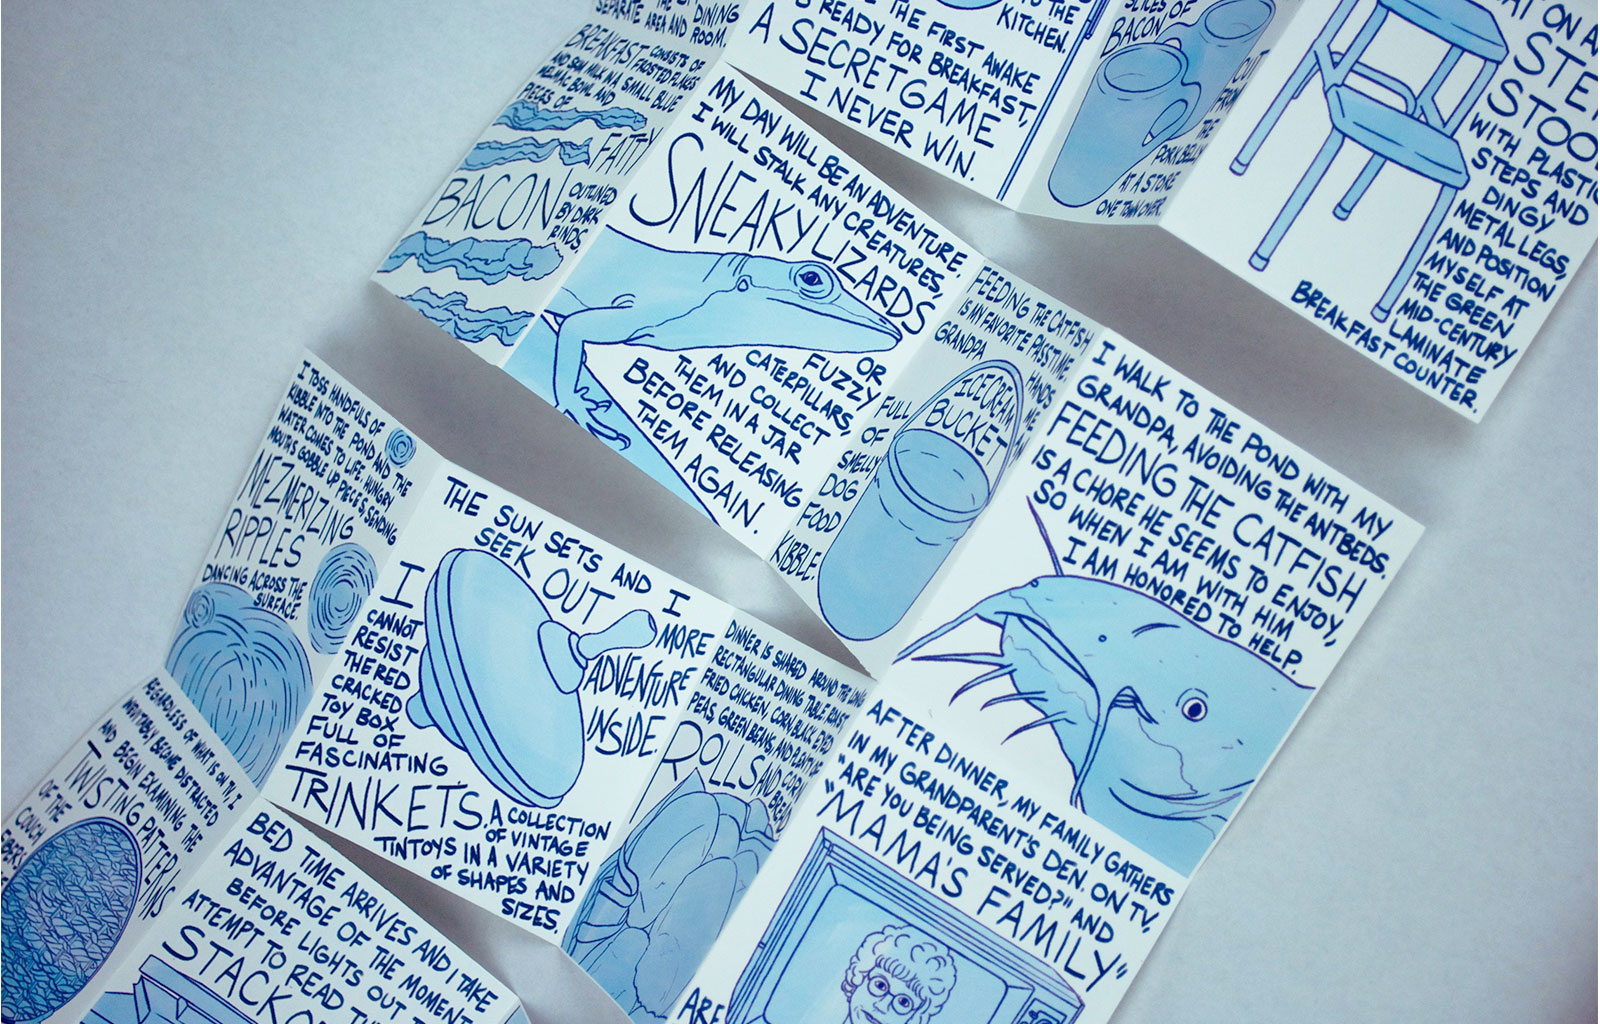 DINING
SEPARATE AREA AND ROOM.
BREAKFAST CONSISTS OF
FROSTED FLAKES
AND SKIM MILK IN A SMALL BLUE
MELMAC BOWL AND
PIECES OF
FATTY
BACON
OUTLINED
BY DARK
RINDS.
THE
KITCHEN.
THE FIRST AWAKE
READY FOR BREAKFAST,
A SECRET GAME
I NEVER WIN.
SLICES OF
BACON
CUT
FROM
THE
PORK BELLY
AT A STORE
ONE TOWN OVER.
ON A
STEP
STOOL
WITH PLASTIC
STEPS AND
DINGY
METAL LEGS,
AND POSITION
MYSELF AT
THE GREEN
MID-CENTURY
LAMINATE
BREAKFAST COUNTER.
MY DAY WILL BE AN ADVENTURE.
I WILL STALK ANY CREATURES,
SNEAKY LIZARDS
OR
FUZZY
CATERPILLARS,
AND COLLECT
THEM IN A JAR
BEFORE RELEASING
THEM AGAIN.
FEEDING THE CATFISH
IS MY FAVORITE PASSTIME.
GRANDPA
HANDS
ME
AN
ICECREAM
BUCKET
FULL
OF
SMELLY
DOG
FOOD
KIBBLE.
I WALK TO THE POND WITH MY
GRANDPA, AVOIDING THE ANTBEDS.
FEEDING THE CATFISH
IS A CHORE HE SEEMS TO ENJOY,
SO WHEN I AM WITH HIM
I AM HONORED TO HELP.
I TOSS HANDFULS OF
KIBBLE INTO THE POND AND THE
WATER COMES TO LIFE. HUNGRY
MOUTHS GOBBLE UP PIECES, SENDING
MEZMERIZING
RIPPLES
DANCING ACROSS THE
SURFACE.
THE SUN SETS AND I
SEEK OUT
MORE
ADVENTURE
INSIDE.
I
CANNOT
RESIST
THE RED
CRACKED
TOY BOX
FULL OF
FASCINATING
TRINKETS.
A COLLECTION
OF VINTAGE
TIN TOYS IN A VARIETY
OF SHAPES AND
SIZES.
DINNER IS SHARED AROUND THE LONG
RECTANGULAR DINING TABLE. ROAST,
FRIED CHICKEN, CORN, BLACK EYED
PEAS, GREEN BEANS, AND PLENTY OF
ROLLS AND CORN
BREAD.
AFTER DINNER, MY FAMILY GATHERS
IN MY GRANDPARENT'S DEN. ON TV,
"ARE YOU BEING SERVED?" AND
"MAMA'S FAMILY"
ARE
REGARDLESS OF WHAT IS ON TV, I
INEVITABLY BECOME DISTRACTED
AND BEGIN EXAMINING THE
TWISTING PATTERNS
OF THE
COUCH
FIBERS
BED TIME ARRIVES AND I TAKE
ADVANTAGE OF THE MOMENT
BEFORE LIGHTS OUT
ATTEMPT TO READ
STACK